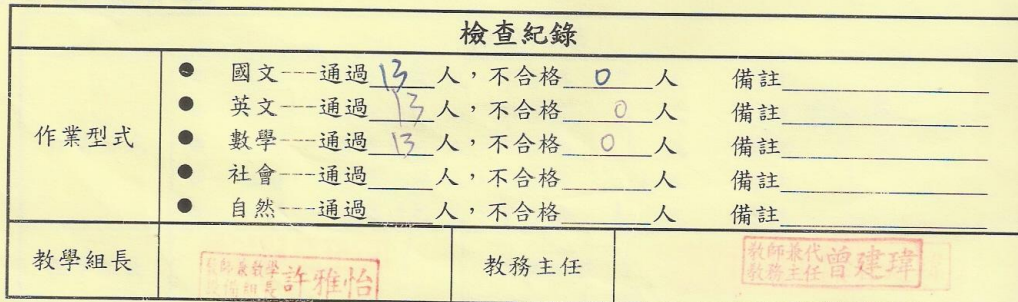 檢查紀錄
作業型式
● 國文---通過 13 人，不合格 0 人 備註
● 英文---通過 13 人，不合格 0 人 備註
● 數學---通過 13 人，不合格 0 人 備註
● 社會---通過 人，不合格 人 備註
● 自然---通過 人，不合格 人 備註
教學組長
教師兼教學
設備組長 許雅怡
教務主任
教師兼代
教務主任 曾建瑋